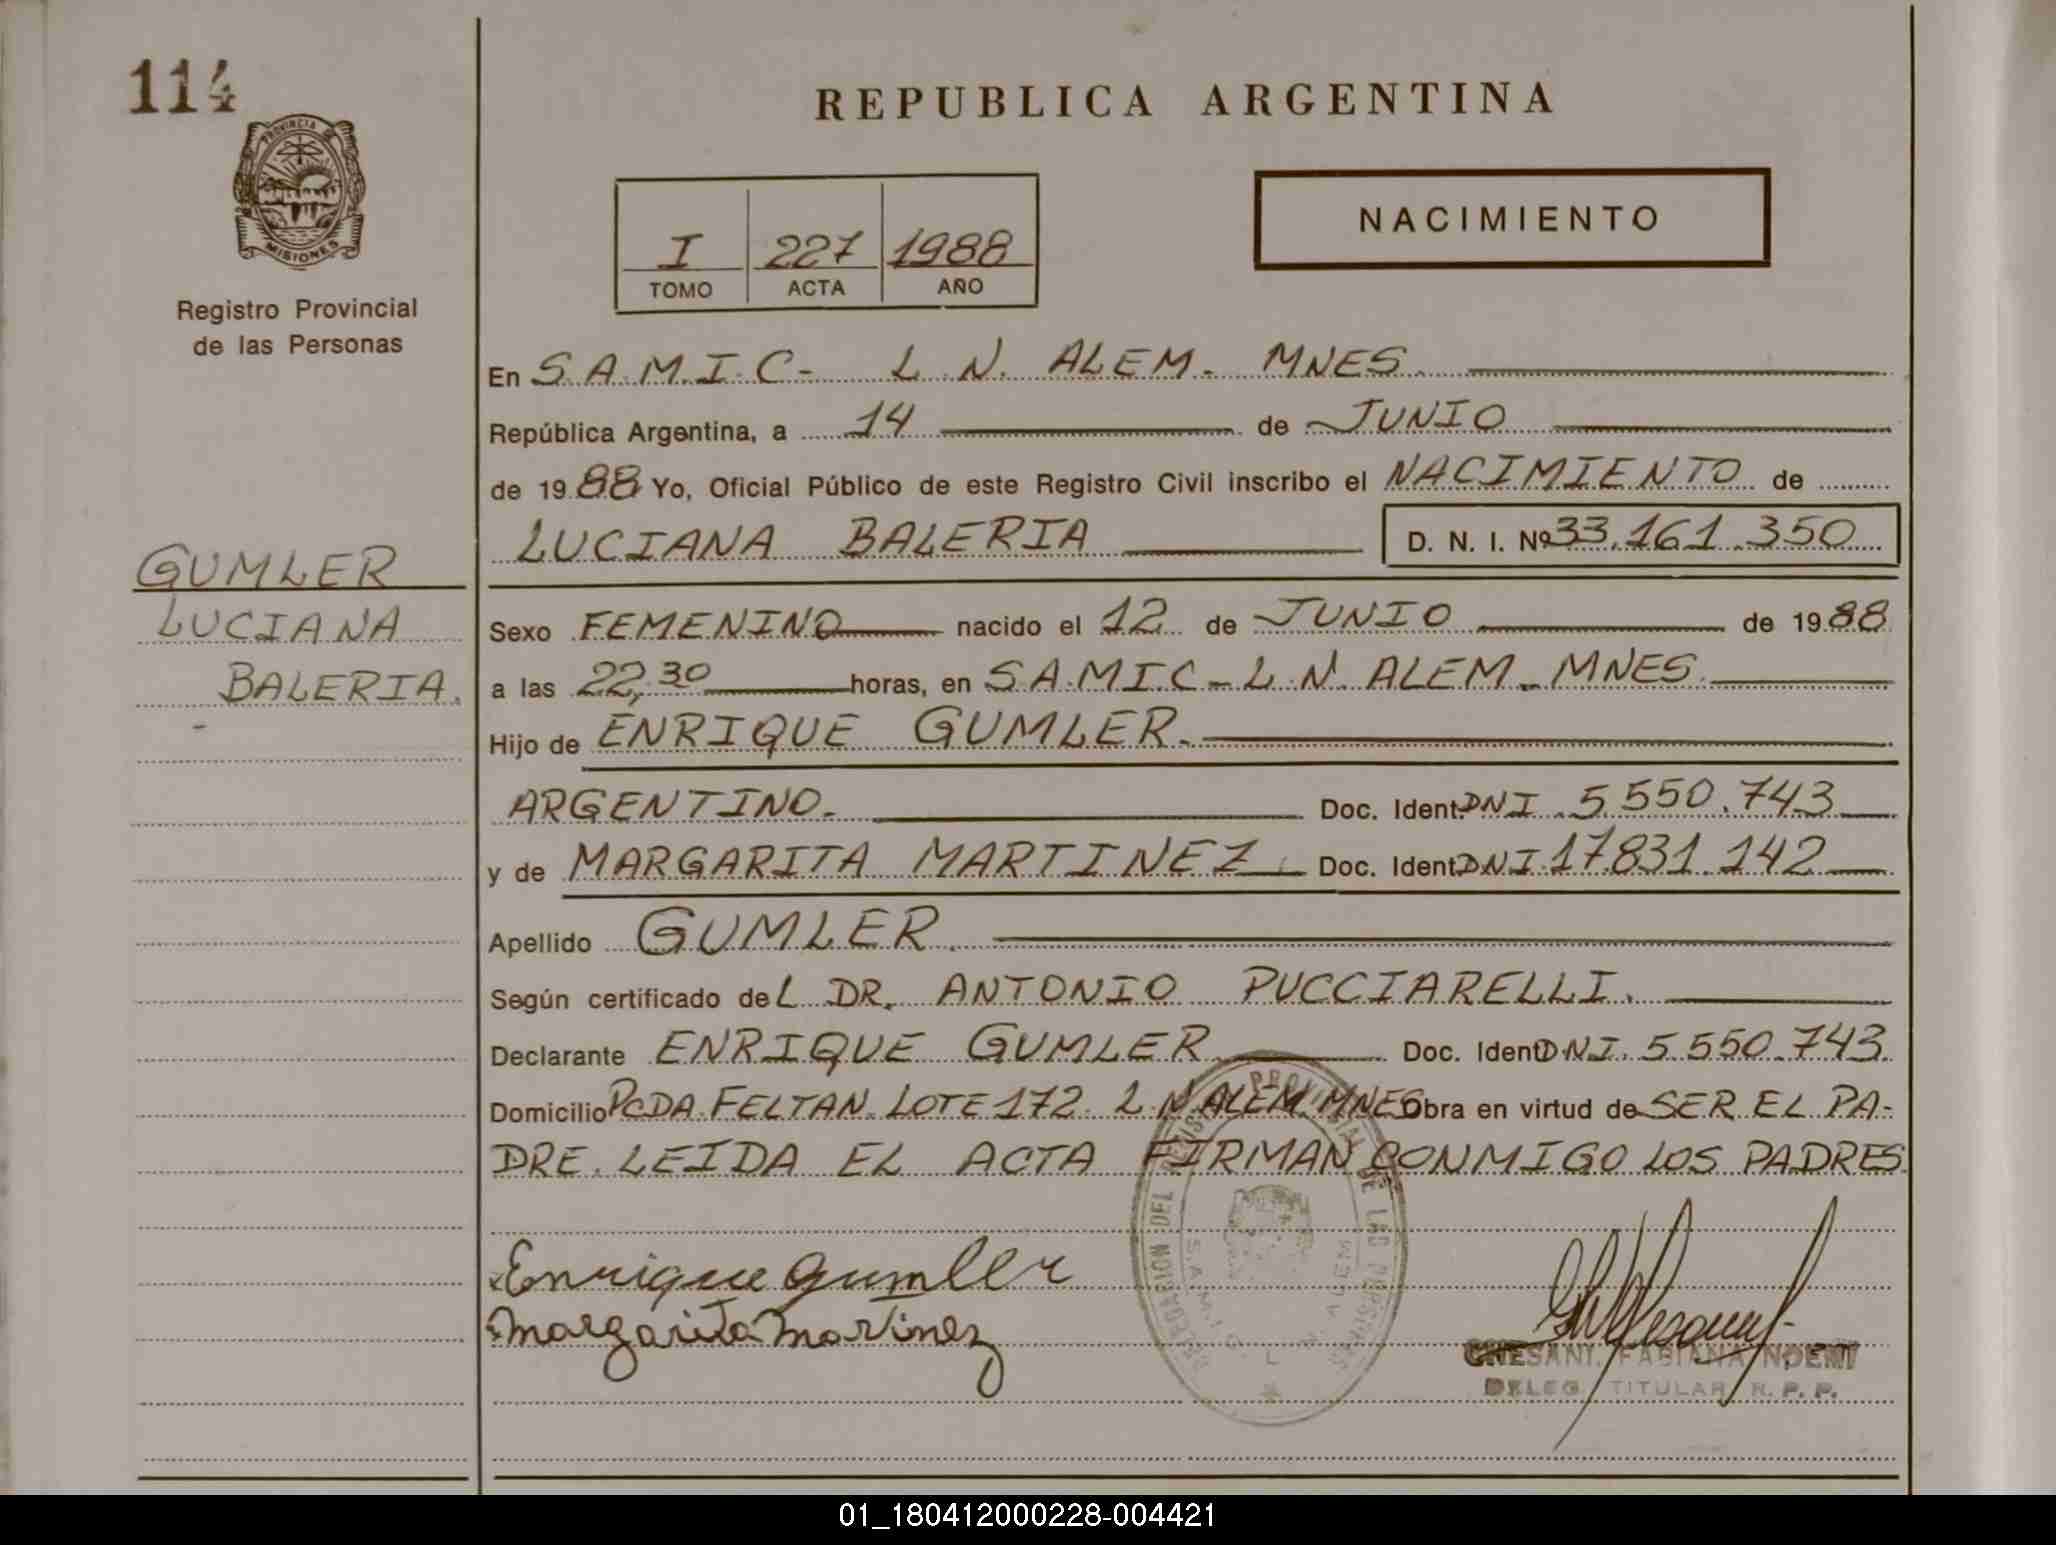 114
PROVINCIA DE
MISIONES
Registro Provincial
de las Personas
GUMLER
LUCIANA
BALERIA.
REPUBLICA ARGENTINA
I 227 1988
TOMO ACTA AÑO
NACIMIENTO
En S.A.M.I.C- L.N. ALEM. MNES.
República Argentina, a 14 de JUNIO
de 1988 Yo, Oficial Público de este Registro Civil inscribo el NACIMIENTO de
LUCIANA BALERIA D. N. I. Nº 33.161.350
Sexo FEMENINO nacido el 12 de JUNIO de 1988
a las 22,30 horas, en S.A.M.I.C - L.N. ALEM - MNES.
Hijo de ENRIQUE GUMLER.
ARGENTINO. Doc. Ident. DNI. 5.550.743
y de MARGARITA MARTINEZ Doc. Ident. DNI. 17.831.142
Apellido GUMLER.
Según certificado del DR. ANTONIO PUCCIARELLI.
Declarante ENRIQUE GUMLER Doc. Ident. DNI. 5.550.743
Domicilio PCDA. FELTAN. LOTE 172. L.N. ALEM. MNES Obra en virtud de SER EL PA-
DRE. LEIDA EL ACTA FIRMAN CONMIGO LOS PADRES.
Enrique Gumller
Margarita Martinez
DELEGACION DEL REGISTRO PROVINCIAL DE LAS PERSONAS
S.A.M.I.C. L. N. ALEM
CHESANI, FABIANA NOEMI
DELEG. TITULAR R. P. P.
01_180412000228-004421